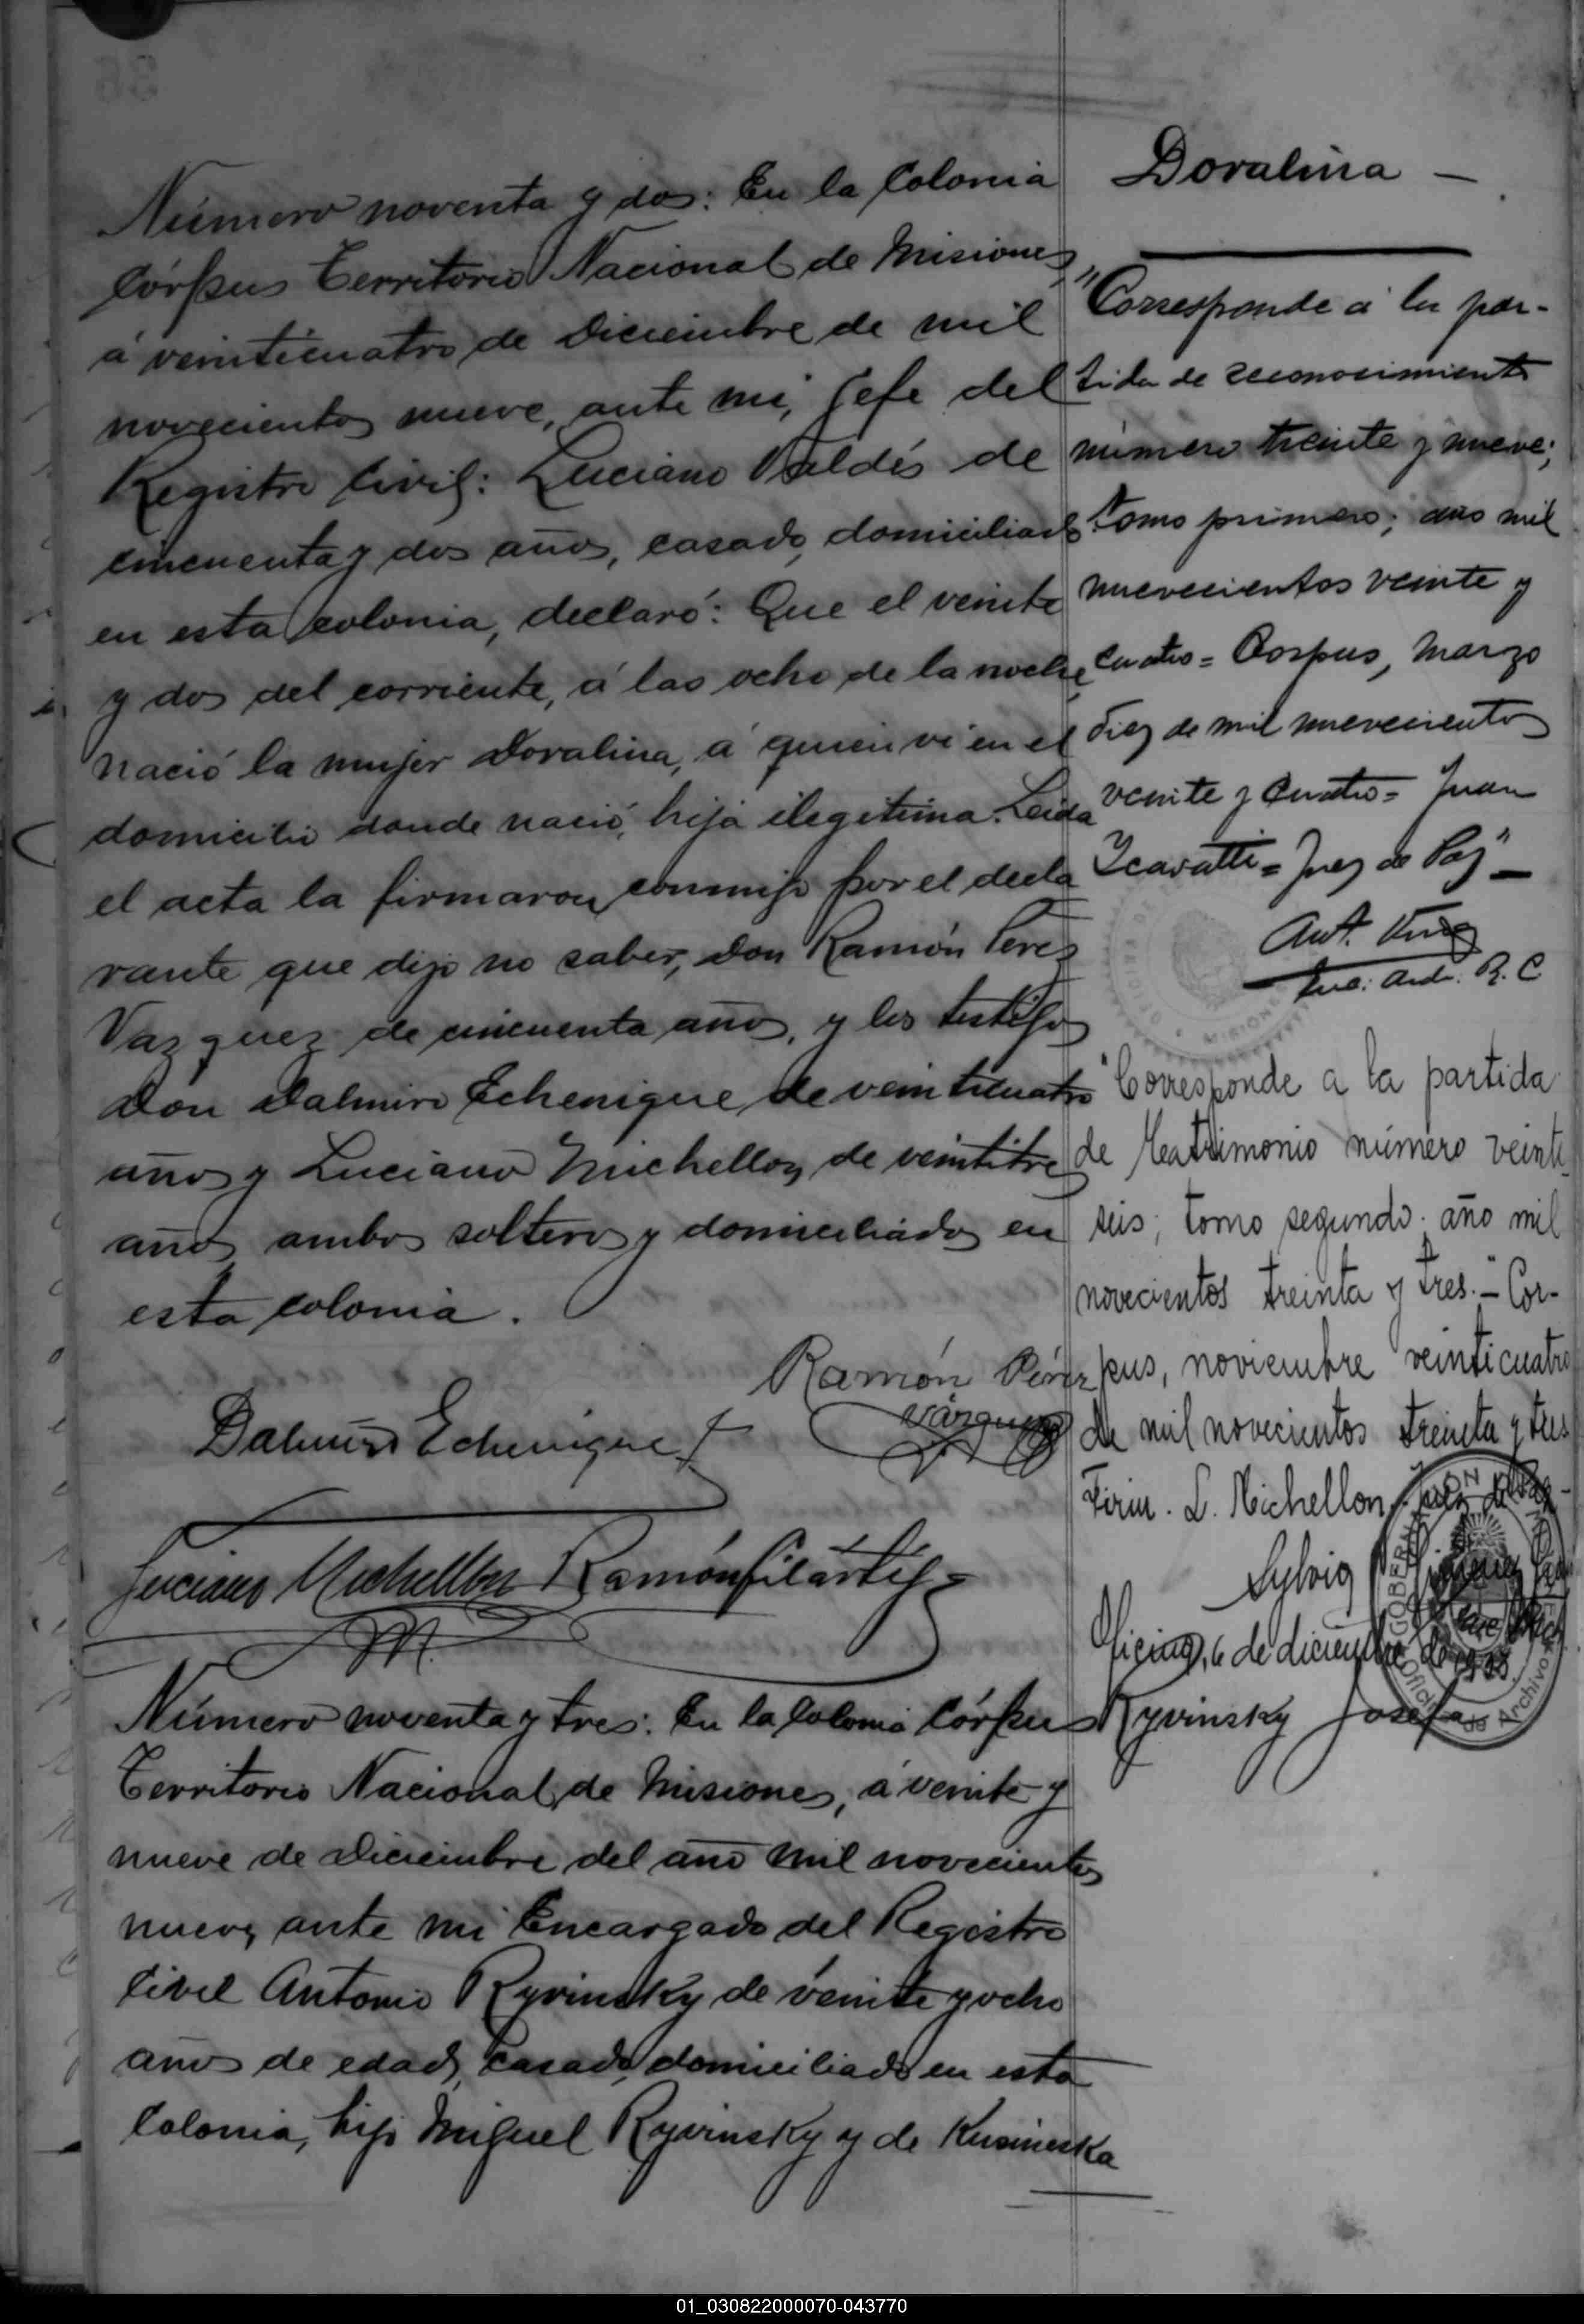 Número noventa y dos: En la Colonia
Córpus Territorio Nacional de Misiones,
á veinticuatro de Diciembre de mil
novecientos nueve, ante mi, Jefe del
Registro Civil: Luciano Valdés de
cincuenta y dos años, casado, domiciliado
en esta colonia, declaró: Que el veinte
y dos del corriente, á las ocho de la noche,
nació la mujer Doralina, á quien vi en el
domicilio donde nació, hija ilegitima. Leida
el acta la firmaron conmigo por el decla
rante que dijo no saber, Don Ramón Peres
Vazquez de cincuenta años, y los testigos
Don Dalmiro Echenique de veinticuatro
años y Luciano Michellon, de veintitres
años ambos solteros y domiciliados en
esta colonia.
Ramón Pérez
Vázquez
Dalmiro Echenique
Luciano Michellon Ramón Filártiga
Número noventa y tres: En la Colonia Córpus
Territorio Nacional de Misiones, á veinte y
nueve de Diciembre del año mil novecientos
nueve, ante mi Encargado del Registro
Civil Antonio Ryvinsky de veinte y ocho
años de edad, casado, domiciliado en esta
Colonia, hijo Miguel Ryvinsky y de Kusineska
Doralina —
"Corresponde á la par-
tida de reconocimiento
número treinta y nueve;
tomo primero; año mil
nuevecientos veinte y
cuatro = Corpus, Marzo
diez de mil nuevecientos
veinte y cuatro = Juan
= Juez de Paz" —
Ant.
R. C
"Corresponde a la partida
de Matrimonio número veinti-
seis; tomo segundo; año mil
novecientos treinta y tres." - Cor-
pus, noviembre veinticuatro
de mil novecientos treinta y tres
Firm. L. Michellon. Juez de Paz-
Sylvia
Oficina, 6 de diciembre de
Ryvinsky Josefa
01_030822000070-043770